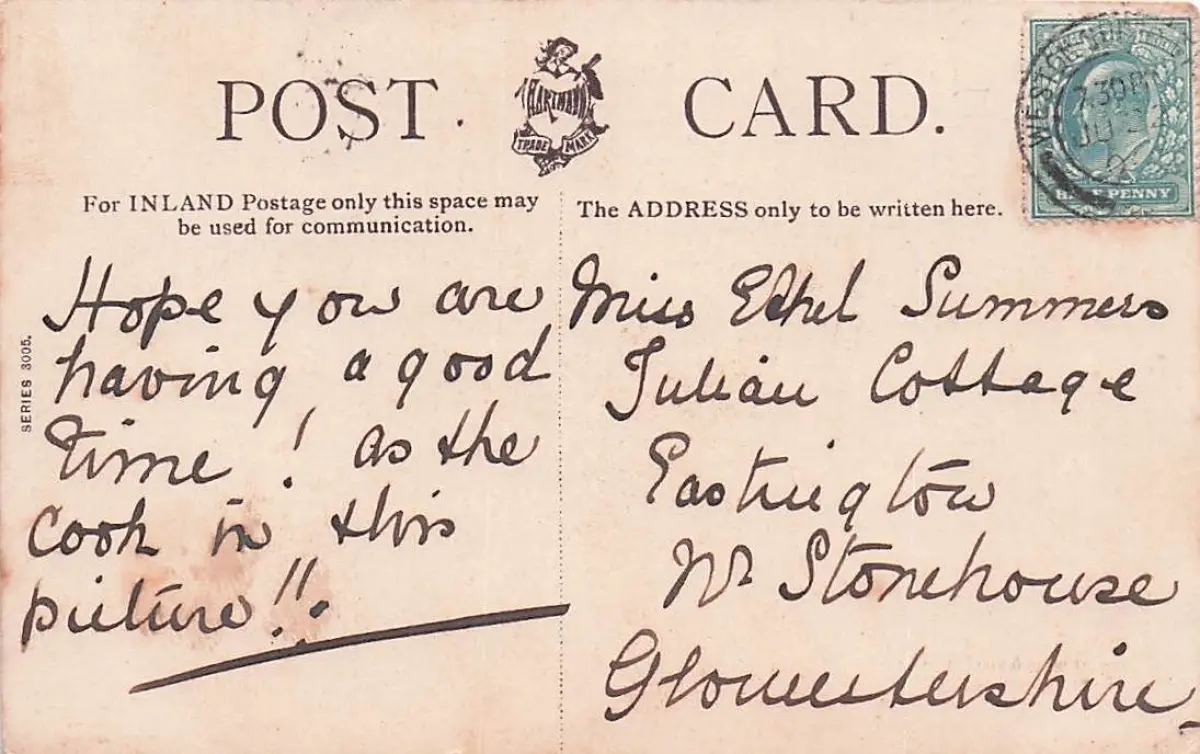 POST CARD.
HARTMANN
TRADE MARK
For INLAND Postage only this space may
be used for communication.
The ADDRESS only to be written here.
WESTON
7.30 P
JU
HALF PENNY
SERIES 3005.
Hope you are
having a good
time! as the
cook in this
picture!!.
Miss Ethel Summers
Julian Cottage
Eastington
Nr Stonehouse
Gloucestershire